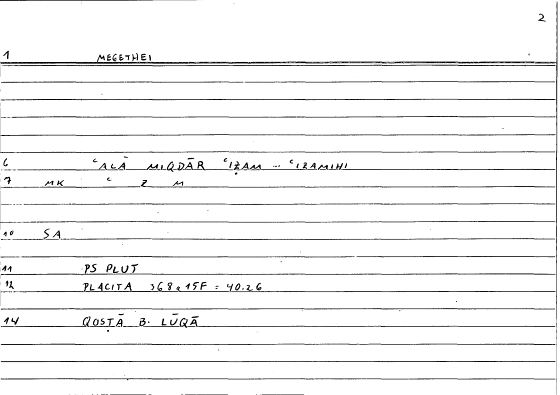 2
1 MEGETHEI
6 ʿALĀ MIQDĀR ʿIẒAM - ʿIZAMIHI
7 MK ʿ Z M
10 SA
11 PS PLUT
12 PLACITA 368a15F = 40.26
14 QOSṬĀ B. LŪQĀ